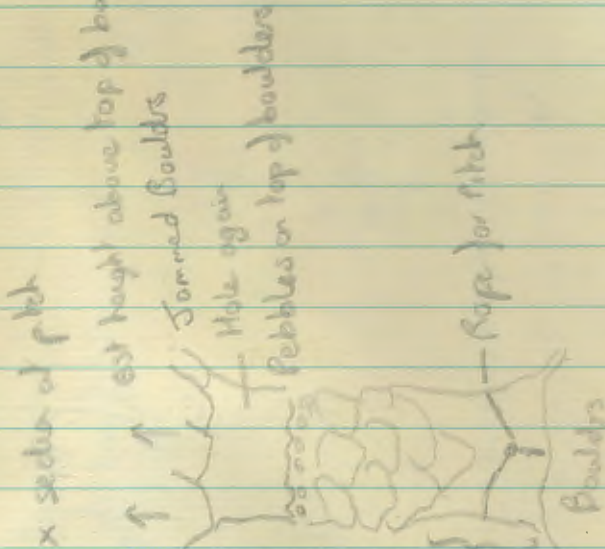 x section at pitch
est height above top of bo
Jammed Boulders
Hole again
Pebbles on top of boulders
Rope for Pitch
Boulders